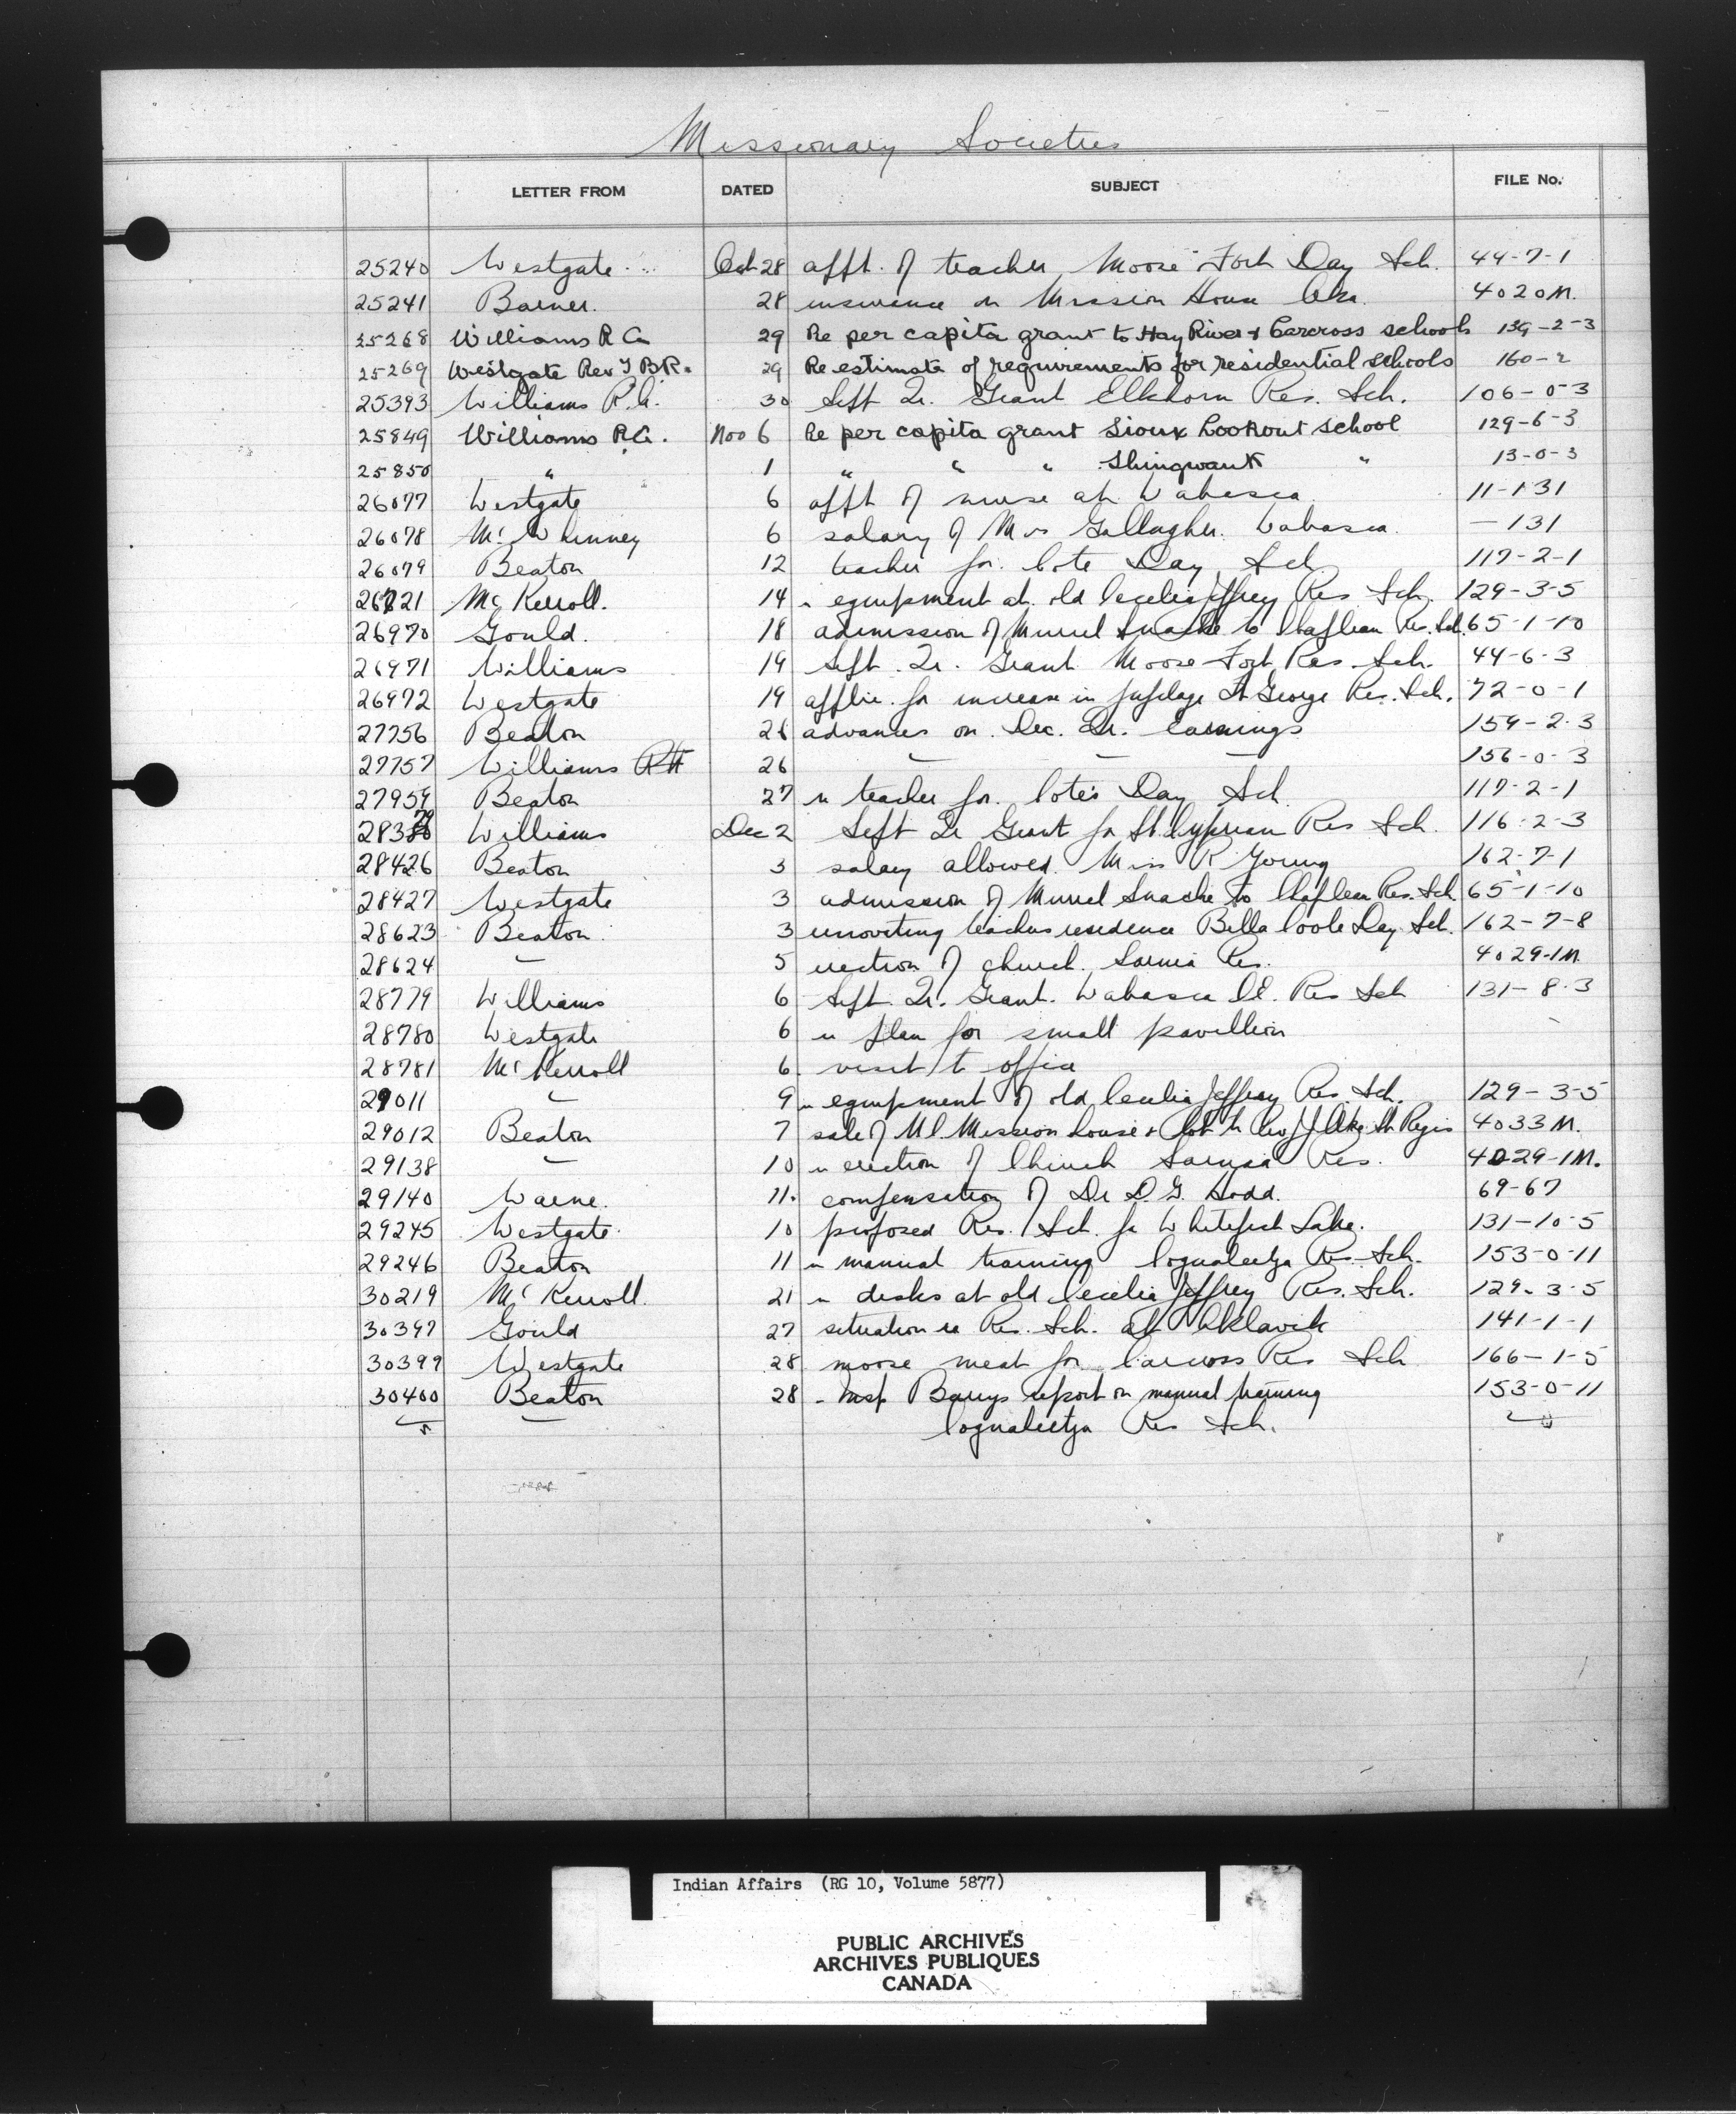 Missionary Societies
LETTER FROM DATED SUBJECT FILE No.
25240 Westgate Oct 28 appt. of teacher, Moose Fort Day Sch. 44-7-1
25241 Barner. 28 insurance on Mission House Oka 4020 M.
25268 Williams R A 29 Re per capita grant to Hay River & Carcross schools 139-2-3
25269 Westgate Rev T B R. 29 Re estimate of requirements for residential schools 160-2
25393 Williams R.A. 30 Sept Qr. Grant Elkhorn Res. Sch. 106-0-3
25849 Williams R A. Nov 6 Re per capita grant Sioux Lookout School 129-6-3
25850 " 1 " " " Shingwauk " 13-0-3
26077 Westgate 6 appt of nurse at Wabasca 11-131
26078 McWhinney 6 salary of Mrs Gallagher. Wabasca. — 131
26079 Beaton 12 teacher for Cote Day Sch 117-2-1
26721 McKerroll. 14 " equipment at old Cecelia Jeffrey Res Sch. 129-3-5
26970 Gould. 18 admission of Muriel Snache to Chapleau Res. Sch. 65-1-10
26971 Williams 19 Sept. Qr. Grant Moose Fort Res. Sch. 44-6-3
26972 Westgate 19 applic. for increase in pupilage Ft George Res. Sch. 72-0-1
27756 Beaton 26 advances on Dec. Qr. earnings 159-2-3
27757 Williams 26 — — — 156-0-3
27959 Beaton 27 " teacher for Cote's Day Sch. 117-2-1
28379 Williams Dec 2 Sept Qr Grant for St. Cyprian Res Sch. 116-2-3
28426 Beaton 3 salary allowed Miss R Young 162-7-1
28427 Westgate 3 admission of Muriel Snache to Chapleau Res. Sch. 65-1-10
28623 Beaton 3 renovating teachers residence Bella Coola Day Sch. 162-7-8
28624 — 5 erection of church, Sarnia Res. 4029-1M
28779 Williams 6 Sept. Qr. Grant. Wabasca C.E. Res Sch 131-8-3
28780 Westgate 6 " plan for small pavillion
28781 McKerroll 6. visit to office
29011 — 9 " equipment of old Cecelia Jeffrey Res. Sch. 129-3-5
29012 Beaton 7 sale of Mission house & lot to St Regis 4033 M.
29138 — 10 " erection of Church Sarnia Res. 4029-1M.
29140 Warne. 11. compensation of Dr D. G. Dodd. 69-67
29245 Westgate 10 proposed Res. Sch. for Whitefish Lake. 131-10-5
29246 Beaton 11 " manual training Coqualeetza Res. Sch. 153-0-11
30219 McKerroll 21 " desks at old Cecelia Jeffrey Res. Sch. 129-3-5
30397 Gould 27 situation re Res. Sch. at Aklavik 141-1-1
30399 Westgate 28 moose meat for Carcross Res Sch 166-1-5
30400 Beaton 28 " Insp Barrys report on manual training 153-0-11
Coqualeetza Res Sch.
Indian Affairs (RG 10, Volume 5877)
PUBLIC ARCHIVES
ARCHIVES PUBLIQUES
CANADA